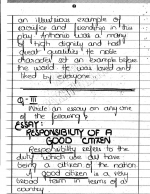 an illustrious example of
sacrifice and friendship in this
play. Antonio was a man
of high dignity and had
great qualities. His noble
character set an example before
the world. He was loved and
liked by everyone.
Q-III
Write an essay on any one
of the following:
ESSAY:
RESPONSIBILITY OF A
GOOD CITIZEN
Responsibility refers to the
duty which we all have
being a citizen of the nation
of good citizen is a very
broad term in terms of a
country.